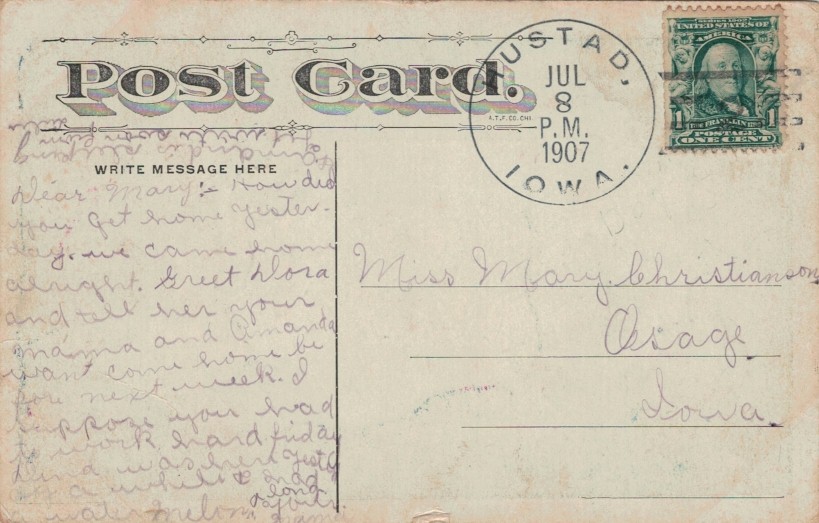 Post Card.
A.T.F. CO. CHI.
WRITE MESSAGE HERE
SERIES 1902
UNITED STATES OF
AMERICA
FRANKLIN
1 1
POSTAGE
ONE CENT
RUSTAD,
JUL
8
P.M.
1907
IOWA.
Dear Mary:- How did
you get home yester-
day. we came home
alright. Greet Dora
and tell her your
mama and Amanda
want come home be
fore next week. I
suppose you had
to work hard friday
was here
a while & had
a water melon
Miss Mary. Christianson
Osage.
Iowa.